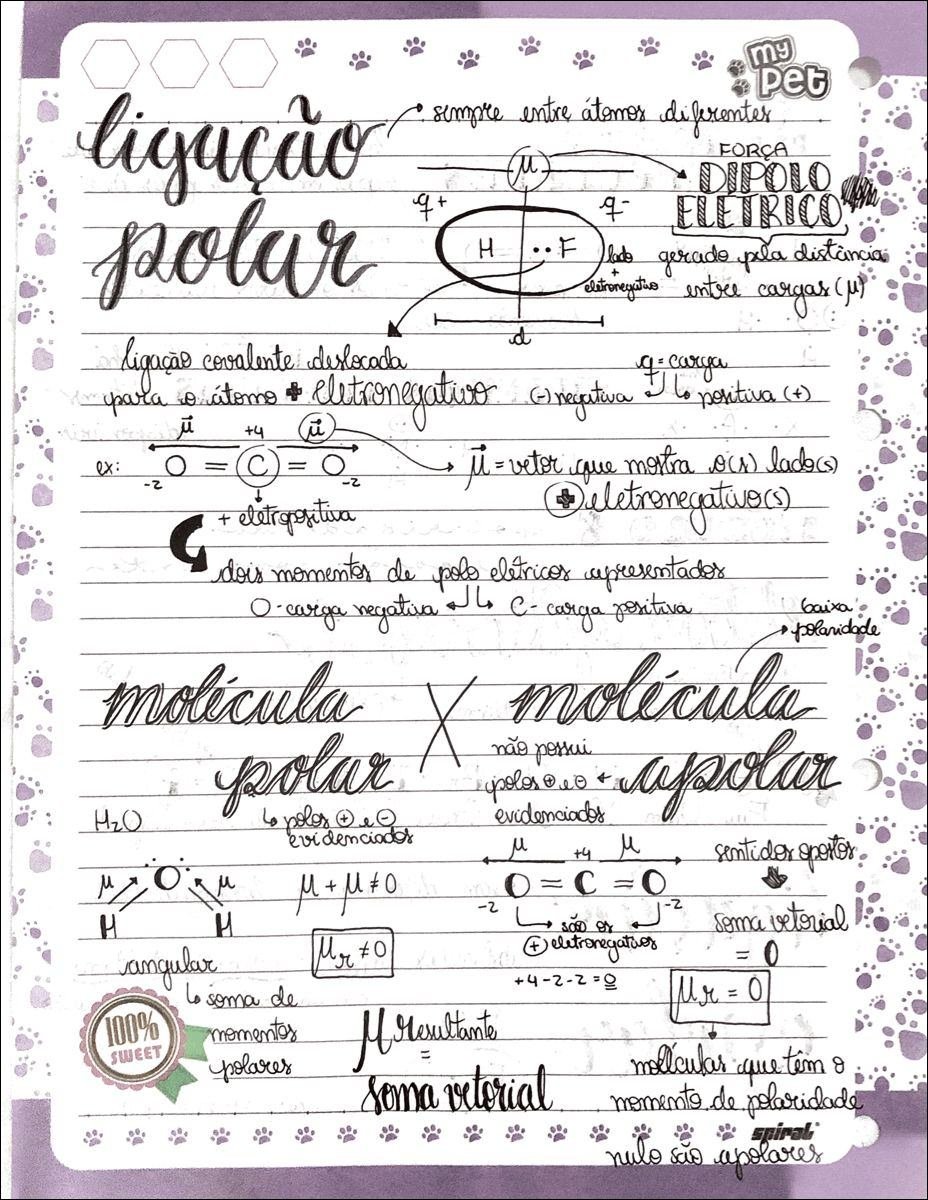 my
pet
ligação
polar
sempre entre átomos diferentes
μ
FORÇA
DIPOLO
ELETRICO
q+
q-
H ·· F
lado
+
eletronegativo
gerado pela distância
entre cargas (μ)
d
ligação covalente deslocada
para o átomo + eletronegativo
q = carga
(-) negativa
positiva (+)
μ +4 μ
ex: O = C = O
-2 -2
+ eletropositiva
μ = vetor que mostra o(s) lado(s)
+ eletronegativo(s)
dois momentos de polo elétricos apresentados
O - carga negativa
C - carga positiva
baixa
polaridade
molécula
polar
X
molécula
apolar
não possui
polos ⊕ e ⊖
evidenciados
H2O
↳ polos ⊕ e ⊖
evidenciados
μ O μ
H H
angular
↳ soma de
momentos
polares
μ + μ ≠ 0
μr ≠ 0
μ +4 μ
O = C = O
-2 -2
são os
⊕ eletronegativos
+4 - 2 - 2 = 0
sentidos opostos
soma vetorial
= 0
μr = 0
moléculas que têm o
momento de polaridade
nulo são apolares
μ resultante
=
soma vetorial
100%
SWEET
spiral